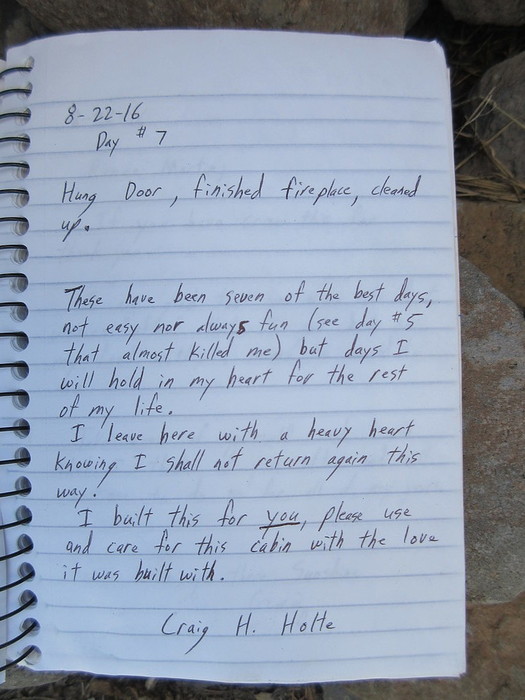 8-22-16
Day #7
Hung Door, finished fireplace, cleaned
up.
These have been seven of the best days,
not easy nor always fun (see day #5
that almost killed me) but days I
will hold in my heart for the rest
of my life.
I leave here with a heavy heart
knowing I shall not return again this
way.
I built this for you, please use
and care for this cabin with the love
it was built with.
Craig H. Holte